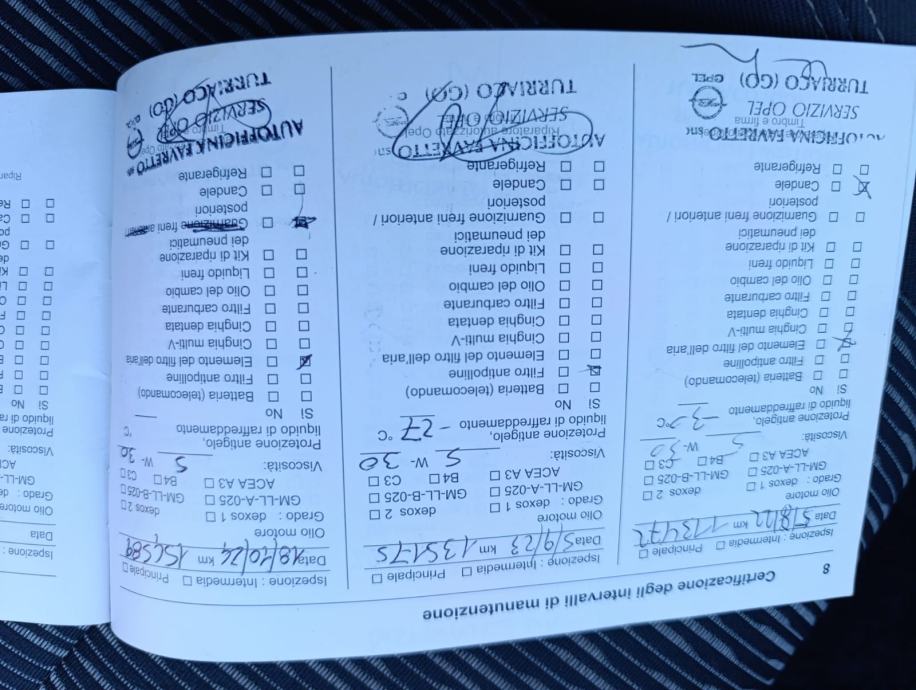 8
Certificazione degli intervalli di manutenzione
Ispezione : Intermedia ☐ Principale ☐
Data 5/8/22 km 113472
Olio motore
Grado : dexos 1 ☐ dexos 2 ☐
GM-LL-A-025 ☐ GM-LL-B-025 ☐
ACEA A3 ☐ B4 ☐ C3 ☐
Viscosità: 5 W- 30
Protezione antigelo,
liquido di raffreddamento °C
Sì No
☐ ☐ Batteria (telecomando)
☐ ☐ Filtro antipolline
☒ ☐ Elemento del filtro dell'aria
☐ ☐ Cinghia multi-V
☐ ☐ Cinghia dentata
☐ ☐ Filtro carburante
☐ ☐ Olio del cambio
☐ ☐ Liquido freni
☐ ☐ Kit di riparazione
dei pneumatici
☐ ☐ Guarnizione freni anteriori /
posteriori
☒ ☐ Candele
☐ ☐ Refrigerante
AUTOFFICINA FAVRETTO
Timbro e firma
SERVIZIO OPEL
TURRIACO (GO)
OPEL
Ispezione : Intermedia ☐ Principale ☐
Data 5/9/23 km 135175
Olio motore
Grado : dexos 1 ☐ dexos 2 ☐
GM-LL-A-025 ☐ GM-LL-B-025 ☐
ACEA A3 ☐ B4 ☐ C3 ☐
Viscosità: 5 W- 30
Protezione antigelo,
liquido di raffreddamento - 27 °C
Sì No
☐ ☐ Batteria (telecomando)
☒ ☐ Filtro antipolline
☐ ☐ Elemento del filtro dell'aria
☐ ☐ Cinghia multi-V
☐ ☐ Cinghia dentata
☐ ☐ Filtro carburante
☐ ☐ Olio del cambio
☐ ☐ Liquido freni
☐ ☐ Kit di riparazione
dei pneumatici
☐ ☐ Guarnizione freni anteriori /
posteriori
☐ ☐ Candele
☐ ☐ Refrigerante
AUTOFFICINA FAVRETTO
Riparatore autorizzato Opel
SERVIZIO OPEL
TURRIACO (GO)
Ispezione : Intermedia ☐ Principale ☐
Data 18/10/24 km 156589
Olio motore
Grado : dexos 1 ☐ dexos 2 ☐
GM-LL-A-025 ☐ GM-LL-B-025 ☐
ACEA A3 ☐ B4 ☐ C3 ☐
Viscosità: 5 W- 30
Protezione antigelo,
liquido di raffreddamento °C
Sì No
☐ ☐ Batteria (telecomando)
☐ ☐ Filtro antipolline
☒ ☐ Elemento del filtro dell'aria
☐ ☐ Cinghia multi-V
☐ ☐ Cinghia dentata
☐ ☐ Filtro carburante
☐ ☐ Olio del cambio
☐ ☐ Liquido freni
☐ ☐ Kit di riparazione
dei pneumatici
☒ ☐ Guarnizione freni anteriori
posteriori
☐ ☐ Candele
☐ ☐ Refrigerante
AUTOFFICINA FAVRETTO
SERVIZIO OPEL
TURRIACO (GO)
Ispezione :
Data
Olio motore
Grado : de
GM-LL-
Viscosità:
Protezione
liquido di ra
Sì No